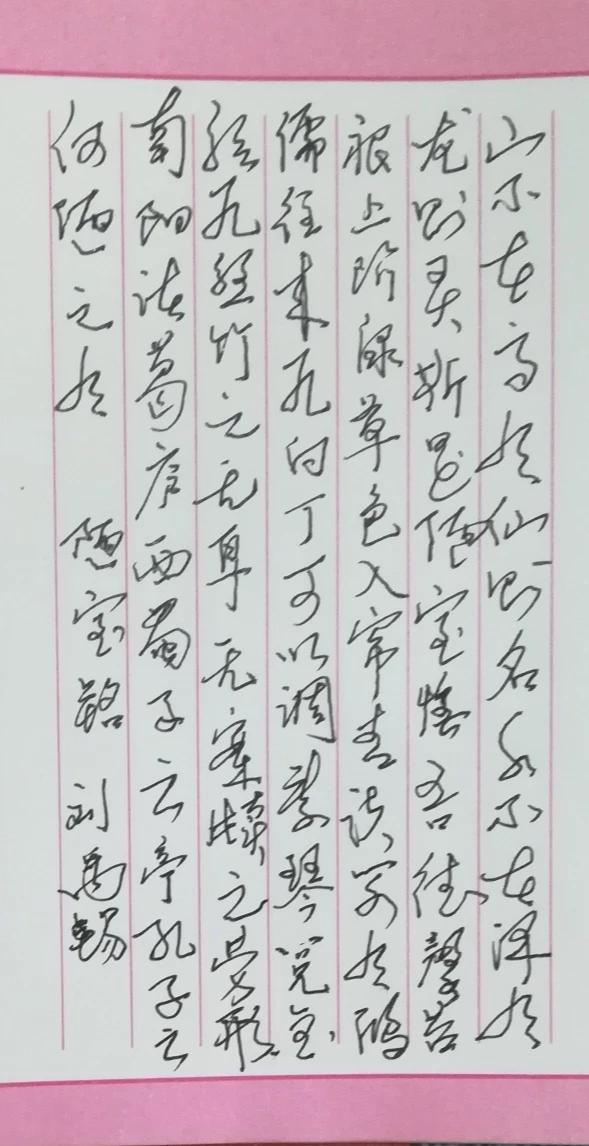 山不在高有仙则名水不在深有
龙则灵斯是陋室惟吾德馨苔
痕上阶绿草色入帘青谈笑有鸿
儒往来无白丁可以调素琴阅金
经无丝竹之乱耳无案牍之劳形
南阳诸葛庐西蜀子云亭孔子云
何陋之有 陋室铭 刘禹锡